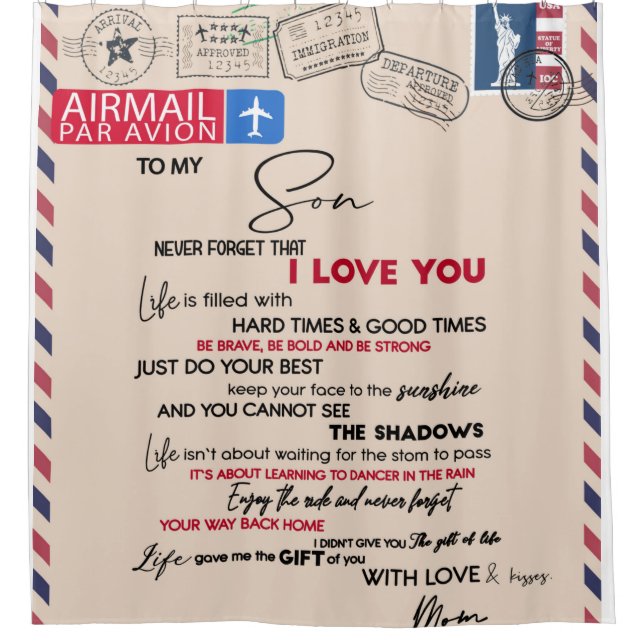 ARRIVAL
12345
APPROVED
12345
12345
IMMIGRATION
12345
DEPARTURE
APPROVED
12345
USA
STATUE
OF
LIBERTY
10¢
AIRMAIL
PAR AVION
TO MY
Son
NEVER FORGET THAT
I LOVE YOU
Life is filled with
HARD TIMES & GOOD TIMES
BE BRAVE, BE BOLD AND BE STRONG
JUST DO YOUR BEST
keep your face to the sunshine
AND YOU CANNOT SEE
THE SHADOWS
Life isn't about waiting for the stom to pass
IT'S ABOUT LEARNING TO DANCER IN THE RAIN
Enjoy the ride and never forget
YOUR WAY BACK HOME
I DIDN'T GIVE YOU The gift of life
Life gave me the GIFT of you
WITH LOVE & kisses.
Mom